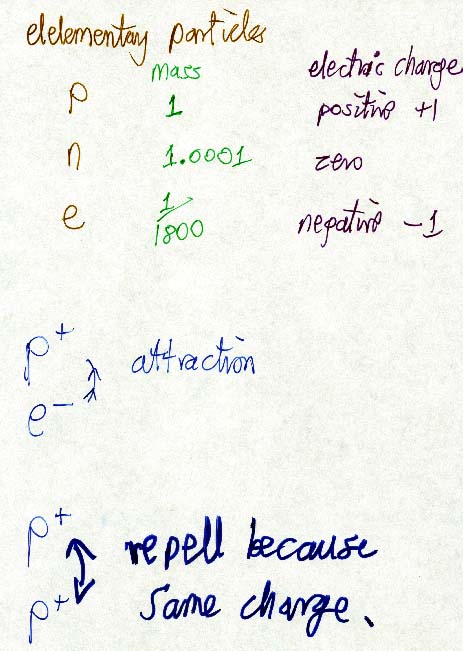 elelementary particles
mass electric charge
p 1 positive +1
n 1.0001 zero
e 1/1800 negative -1
p+
attraction
e-
p+
repell because
p+ same charge.